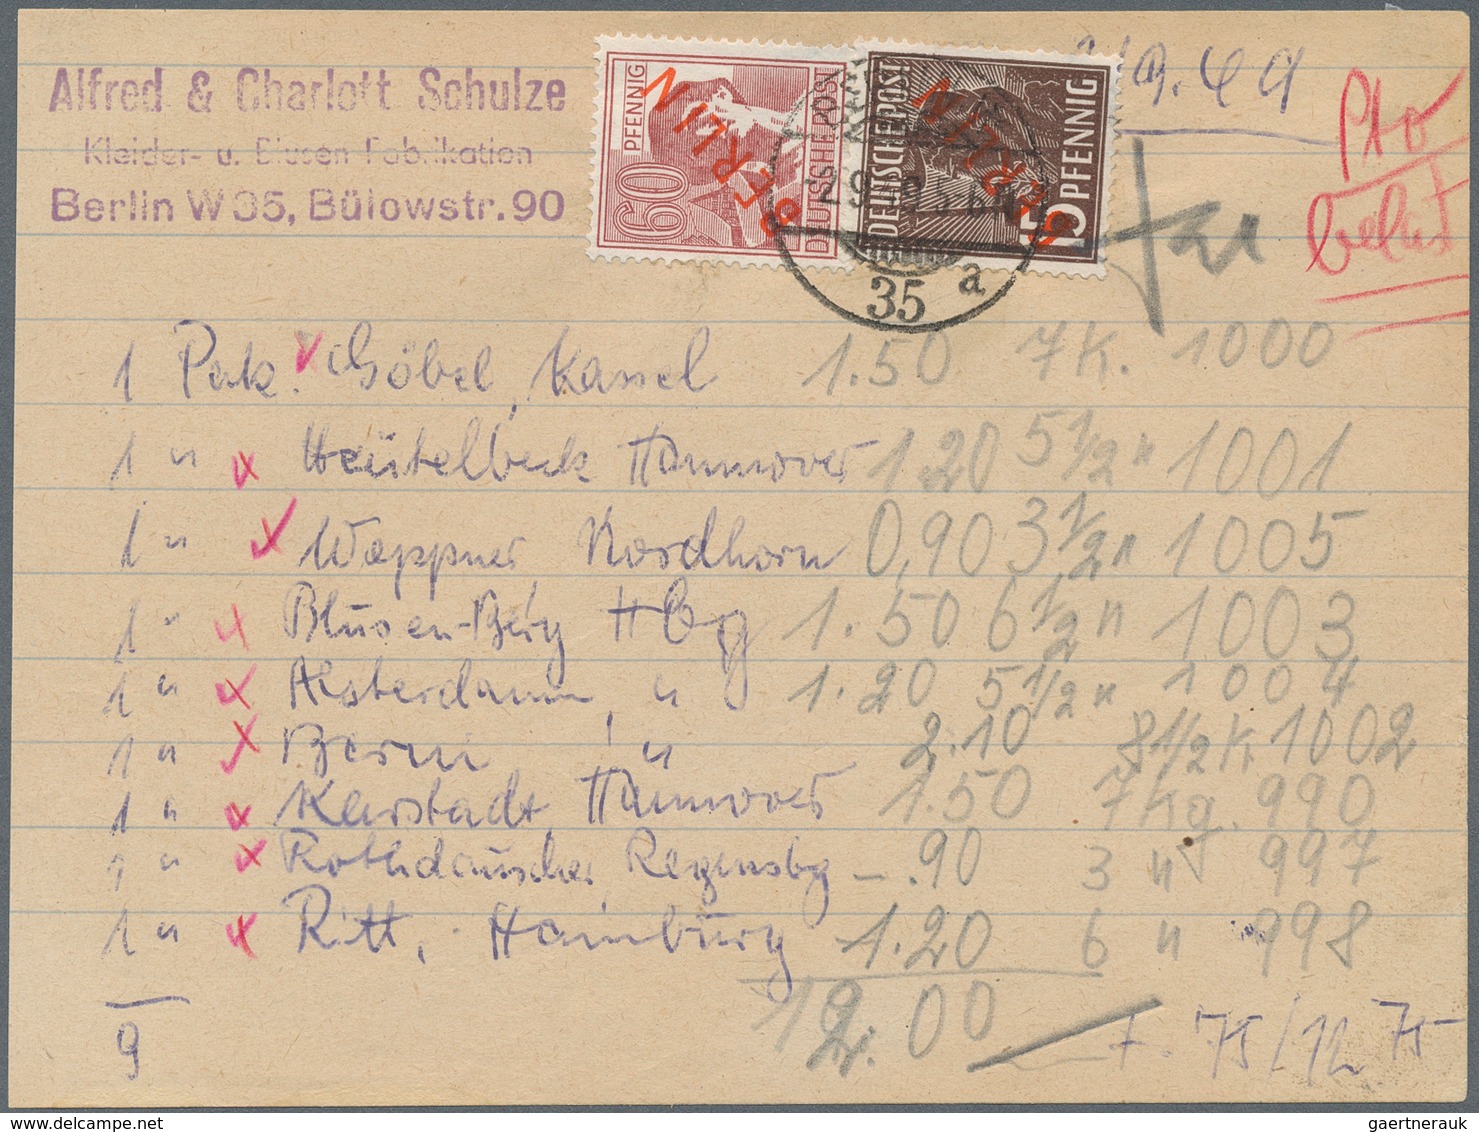 Alfred & Charlott Schulze
Kleider- u. Blusen Fabrikation
Berlin W 35, Bülowstr. 90
60 PFENNIG DEUTSCHE POST BERLIN
15 PFENNIG DEUTSCHE POST BERLIN
2.9.49
35 a
9.49
Pto
belast
1 Pak. Göbel, Kassel 1.50 7 K. 1000
1 " Heütelbeck Hannover 1.20 5 1/2 " 1001
1 " Wappner Nordhorn 0,90 3 1/2 " 1005
1 " Blusen-Berg Hbg 1.50 6 1/2 " 1003
1 " Alsterdamm, " 1.20 5 1/2 " 1004
1 " " 2.10 8 1/2 K 1002
1 " Karstadt, Hannover 1.50 7 Kg. 990
1 " Regensbg -.90 3 " 997
1 " Ritt, Hamburg 1.20 6 " 998
9
12.00
-.75/12 75
gaertnerauk